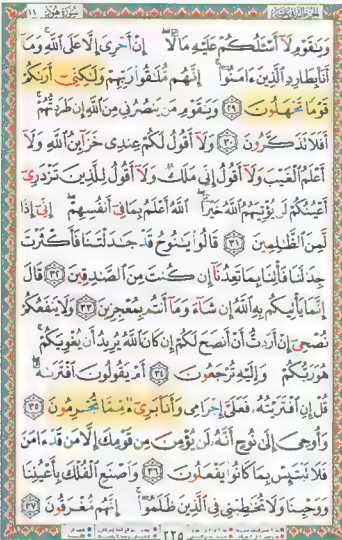 سورة هود ١١
ويقوم لا أسئلكم عليه مالا إن أجري إلا على الله وما
أنا بطارد الذين ءامنوا إنهم ملقوا ربهم ولكني أرىكم
قوما تجهلون ٢٩ ويقوم من ينصرني من الله إن طردتهم
أفلا تذكرون ٣٠ ولا أقول لكم عندي خزائن الله ولا
أعلم الغيب ولا أقول إني ملك ولا أقول للذين تزدري
أعينكم لن يؤتيهم الله خيرا الله أعلم بما في أنفسهم إني إذا
لمن الظلمين ٣١ قالوا ينوح قد جدلتنا فأكثرت
جدلنا فأتنا بما تعدنا إن كنت من الصدقين ٣٢ قال
إنما يأتيكم به الله إن شاء وما أنتم بمعجزين ٣٣ ولا ينفعكم
نصحي إن أردت أن أنصح لكم إن كان الله يريد أن يغويكم
هو ربكم وإليه ترجعون ٣٤ أم يقولون افترىه
قل إن افتريته فعلي إجرامي وأنا بريء مما تجرمون ٣٥
وأوحي إلى نوح أنه لن يؤمن من قومك إلا من قد ءامن
فلا تبتئس بما كانوا يفعلون ٣٦ واصنع الفلك بأعيننا
ووحينا ولا تخطبني في الذين ظلموا إنهم مغرقون ٣٧
٢٢٥